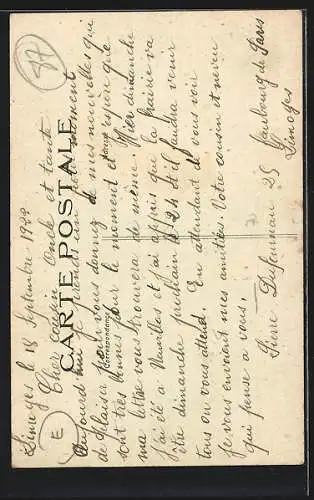 87
E
CARTE POSTALE
Correspondance
Limoges le 18 Septembre 1922
Cher cousin Oncle et tante
Aujourd'hui je prends un petit moment
de plaisir pour vous donner de mes nouvelles qui
sont très bonnes pour le moment et j'espère que
ma lettre vous trouvera de même. Hier dimanche
j'ai été à Nauvilles et j'ai appris que la frairie va
être dimanche prochain le 24 et il faudra venir
tous on vous attend. En attendant de vous voir
je vous envoient mes amitiés. Votre cousin et neveu
qui pense a vous.
Pierre 25
Faubourg de Paris
Limoges